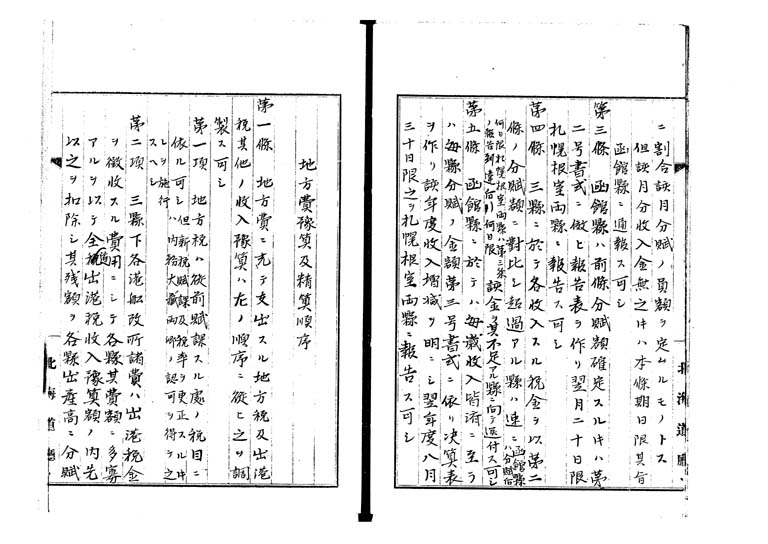 ニ割合該月分賦ノ員額ヲ定ムルモノトス
但該月分収入金無之キハ本條期日限其旨
函館縣ニ通報スヘシ
第三條 函館縣ハ前條分賦額確定スルキハ第
二号書式ニ倣ヒ報告表ヲ作リ翌月二十日限
札幌根室両縣ニ報告ス可シ
第四條 三縣ニ於テ各收入スル税金ヲ以第二
條ノ分賦額ニ對比シ超過アル縣ハ速ニ函館縣ハ分賦
何日限札幌根室両縣ハ第三条
ノ報告到達
該金ヲ其不足アル縣ニ向テ送付ス可シ
第五條 函館縣ニ於テハ毎歳收入皆済ニ至ラ
ハ毎縣分賦ノ金額第三号書式ニ依リ決算表
ヲ作リ該年度收入増減ヲ明ニシ翌年度八月
三十日限之ヲ札幌根室両縣ニ報告ス可シ
地方費豫算及精算順序
第一條 地方費ニ充テ支出スル地方税及出港
税其他ノ收入豫算ハ左ノ順序ニ從ヒ之ヲ調
製ス可シ
第一項 地方税ハ從前賦課スル處ノ税目ニ
依ル可シ但新税賦課及税率ヲ更正スルキ
ハ内務大蔵両卿ノ認可ヲ得テ之
レヲ施行
スヘシ
第二項 三縣下各港船改所諸費ハ出港税金
ヲ徴收スル費用ニシテ各縣其費額ニ多寡
アルヲ以テ全出港税收入豫算額ノ内先
以之ヲ扣除シ其残額ヲ各縣出産高ニ分賦
北海道廳
北海道廳